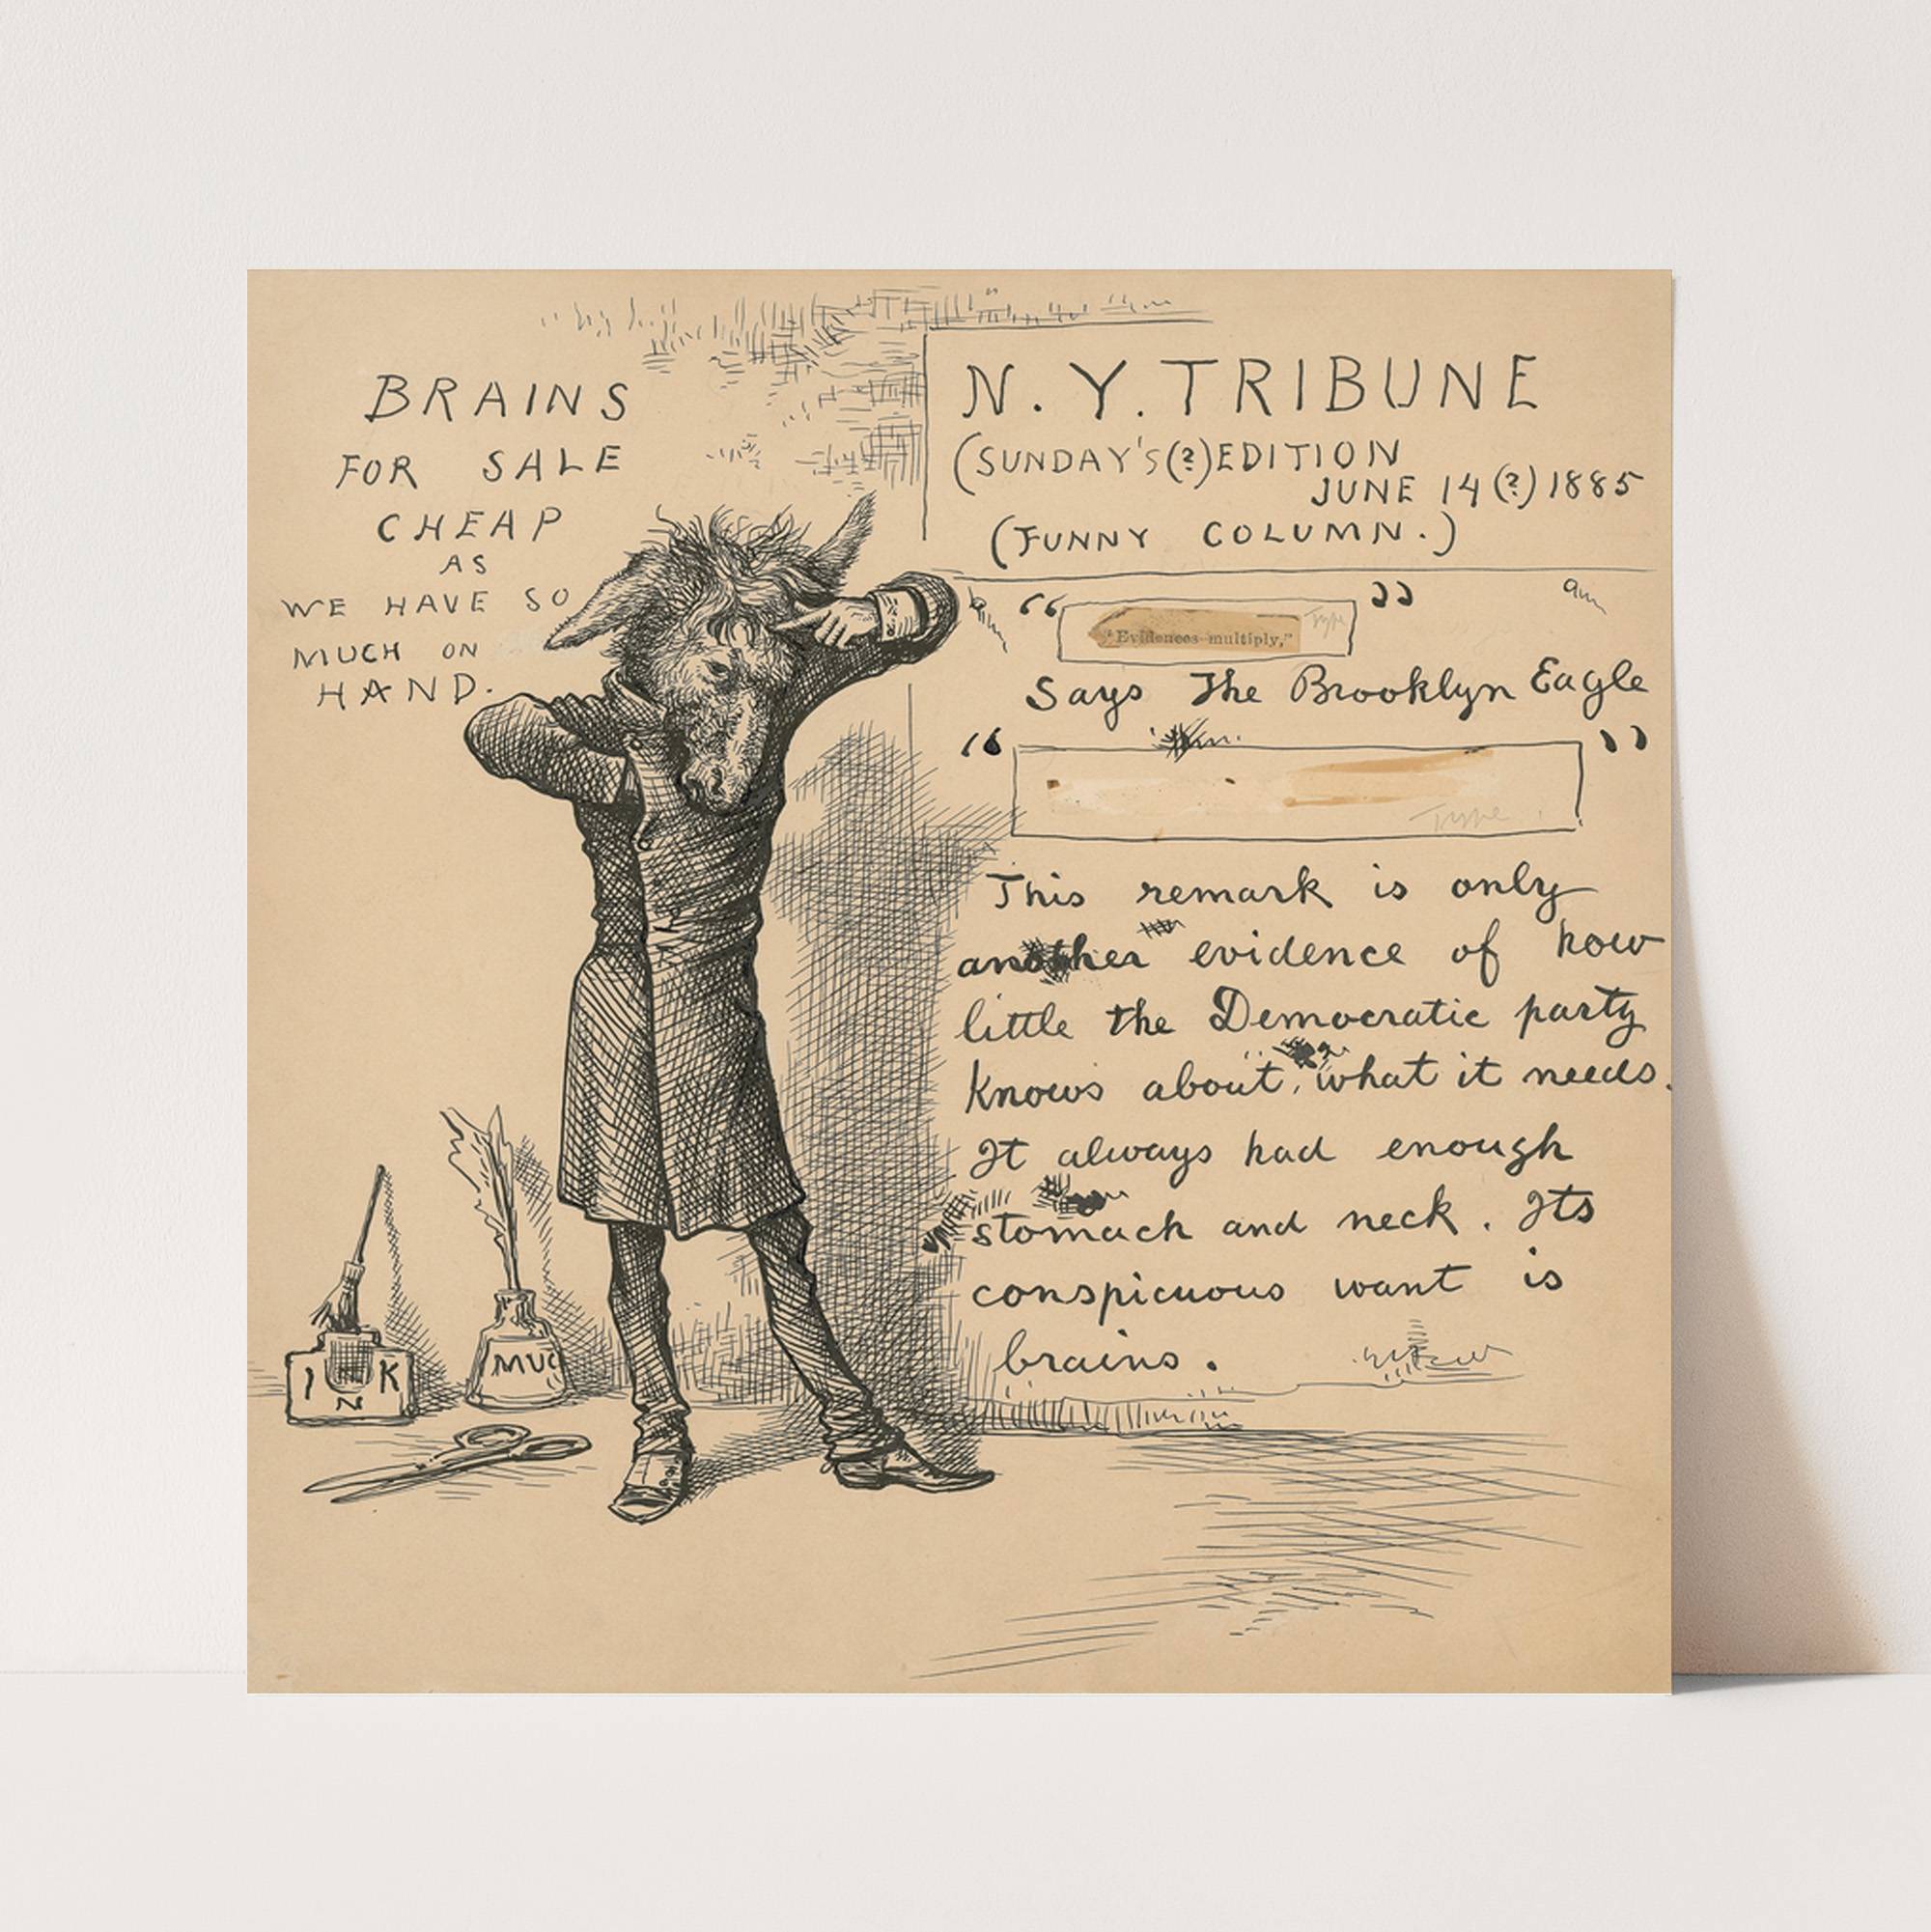 BRAINS
FOR SALE
CHEAP
AS
WE HAVE SO
MUCH ON
HAND.
N. Y. TRIBUNE
(SUNDAY'S(?)EDITION
JUNE 14(?)1885
(FUNNY COLUMN.)
“ "Evidences multiply," Type ”
Says The Brooklyn Eagle
“ Type. ”
This remark is only
another evidence of how
little the Democratic party
Knows about, what it needs.
It always had enough
stomach and neck. Its
conspicuous want is
brains.
INK
MUC